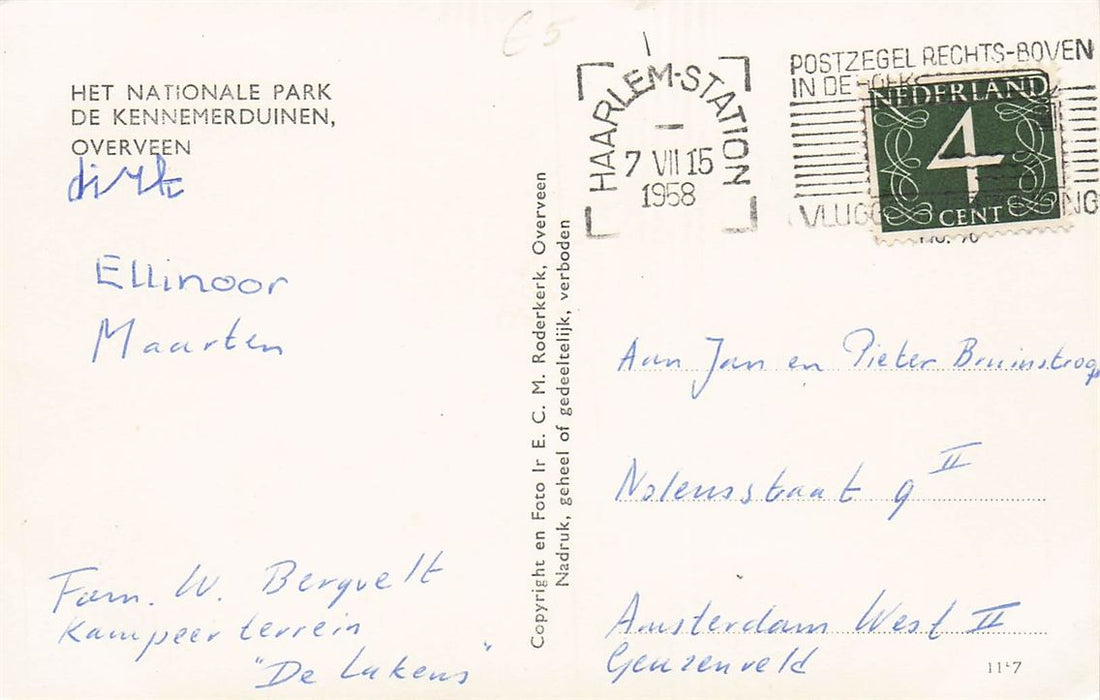 €5
HET NATIONALE PARK
DE KENNEMERDUINEN,
OVERVEEN
dirk
Ellinoor
Maarten
Fam. W. Bergvelt
Kampeerterrein
"De Lakens"
Copyright en Foto Ir E. C. M. Roderkerk, Overveen
Nadruk, geheel of gedeeltelijk, verboden
HAARLEM-STATION
7 VII 15
1958
POSTZEGEL RECHTS-BOVEN
IN DE HOEK
NEDERLAND
4
CENT
Aan Jan en Pieter
Nolensstraat 9 II
Amsterdam West II
Geuzenveld
11'7